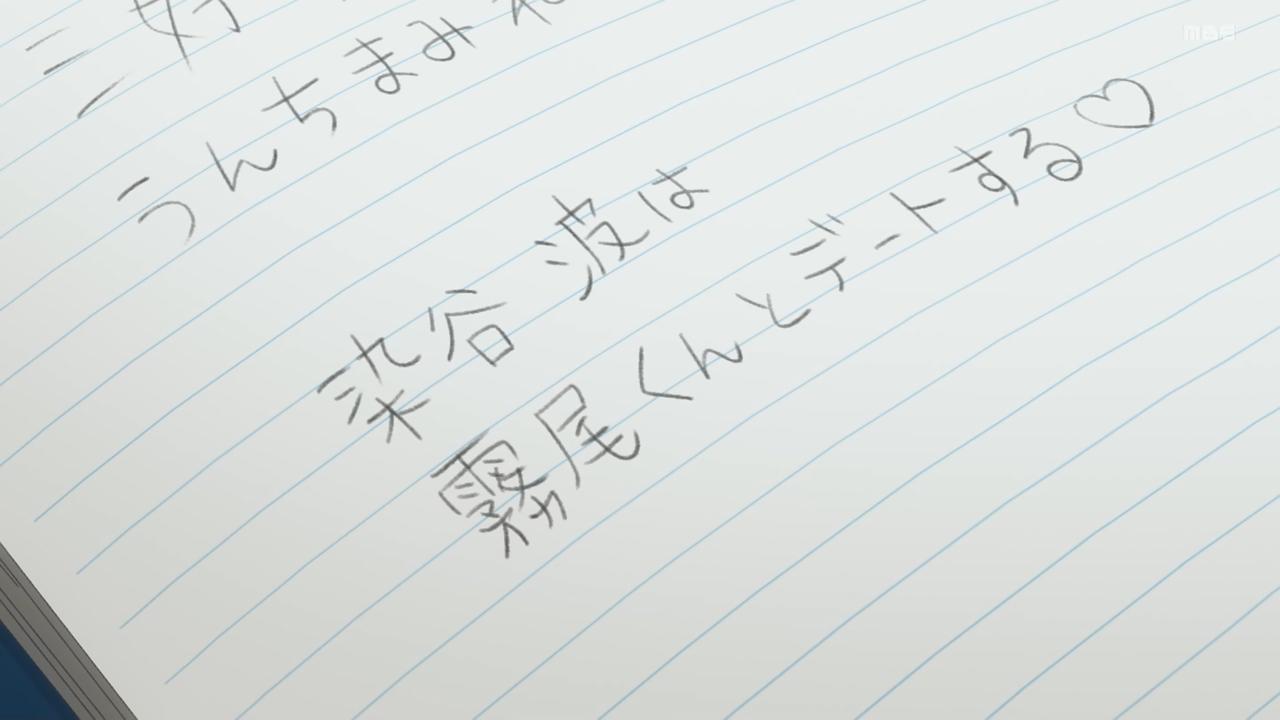 三好
うんちまみれ
染谷 波は
霧尾くんとデートする♡
MBS